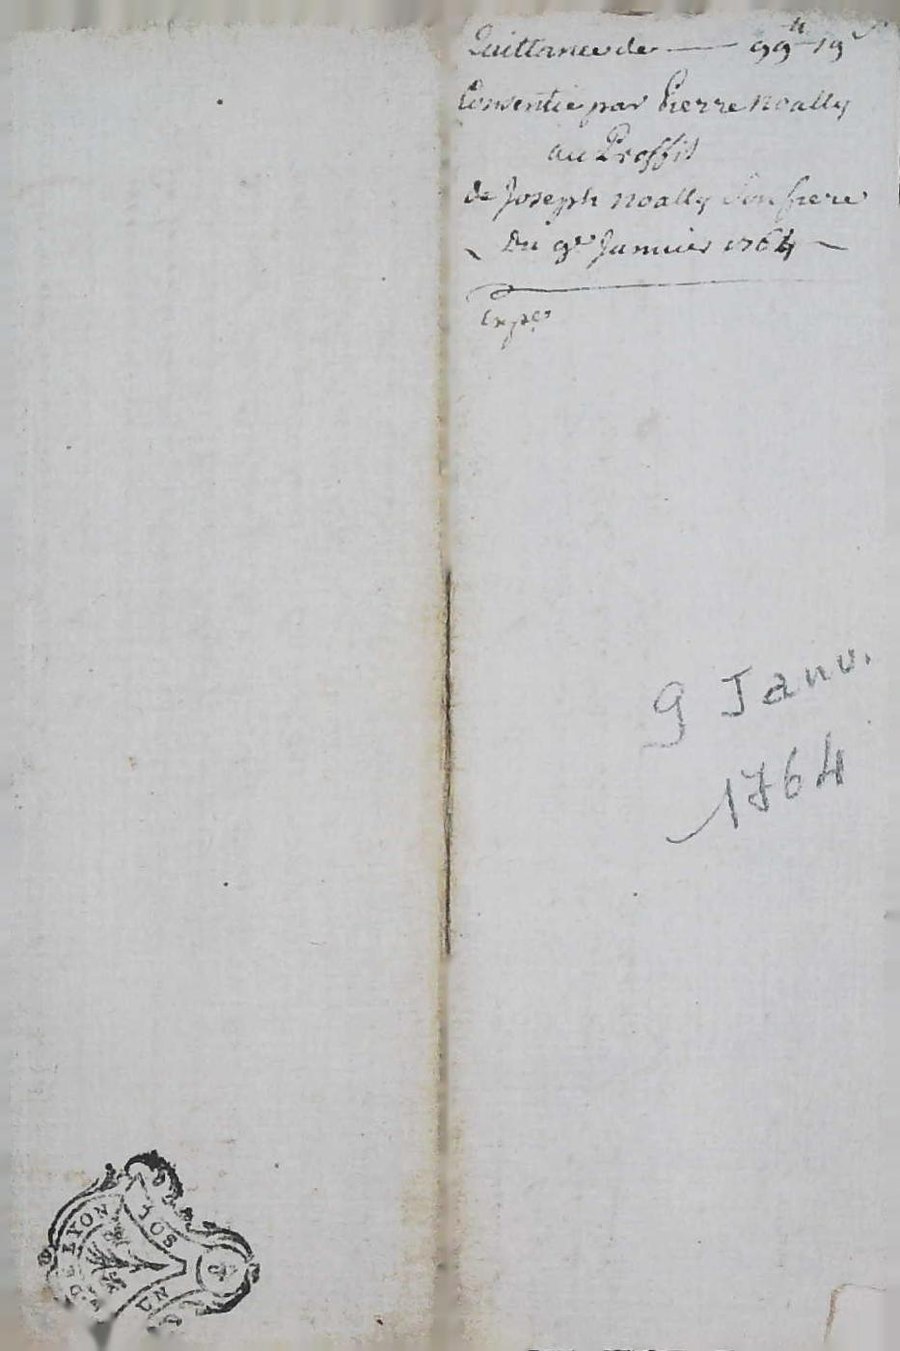 Quittance de — 99# 19s
Consentie par Pierre Noally
au Proffit
de Joseph Noally Son frere
Du 9e Janvier 1764
Expé
9 Janv.
1764
DE LYON
10S
UN